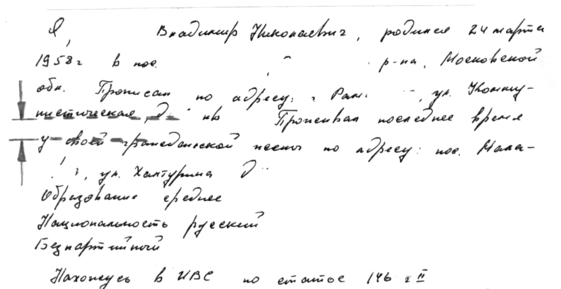 Я, Владимир Николаевич, родился 24 марта
1958г в пос. р-на, Московской
обл. Прописан по адресу: г Рам. ул. Комму-
нистическая, д. кв Проживал последнее время
у своей гражданской жены по адресу: пос. Мала-
, ул. Халтурина д
Образование среднее
Национальность русский
Безпартийный
Нахожусь в ИВС по статье 146 ч II